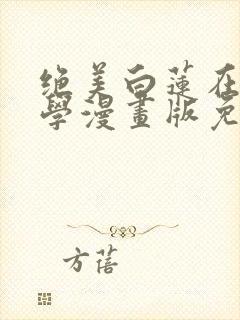 绝美白蓮在
學漫畫版免
方蓓